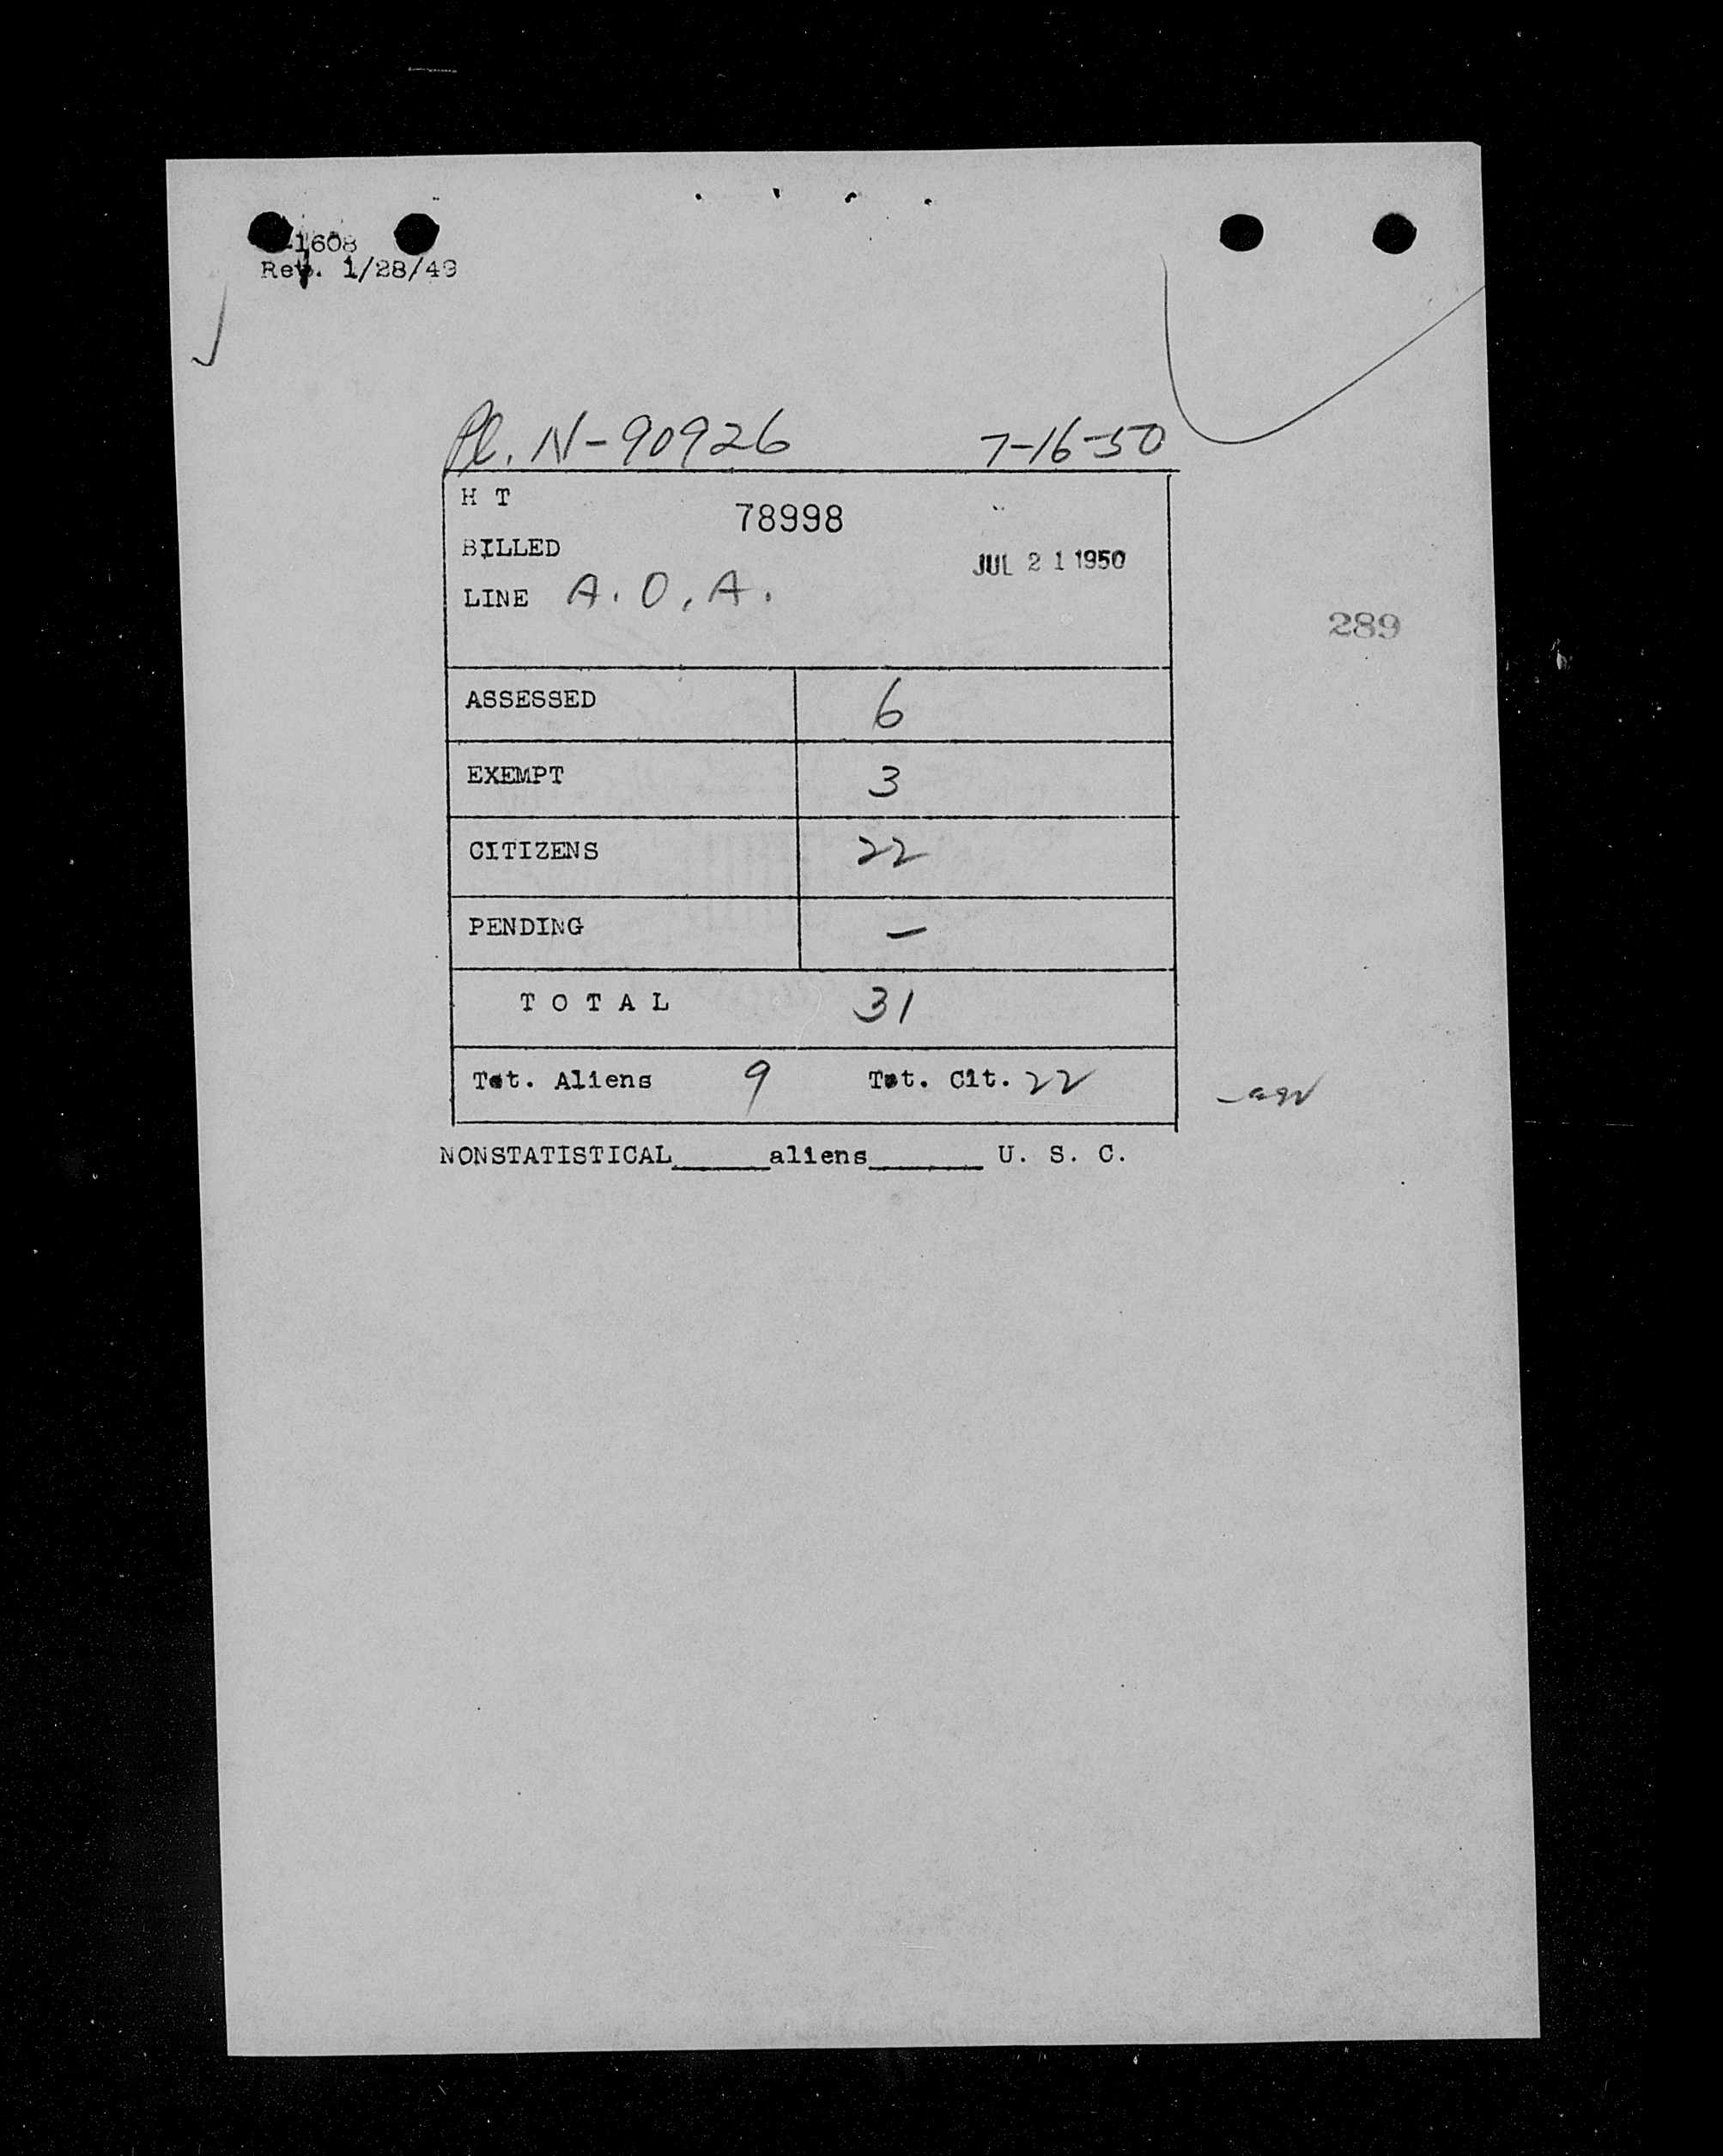 1608
Rev. 1/28/49
Pl. N-90926 7-16-50
H T
78998
BILLED
JUL 21 1950
LINE A.O.A.
289
ASSESSED 6
EXEMPT 3
CITIZENS 22
PENDING —
TOTAL 31
Tot. Aliens 9 Tot. Cit. 22
NONSTATISTICAL______aliens_______ U. S. C.